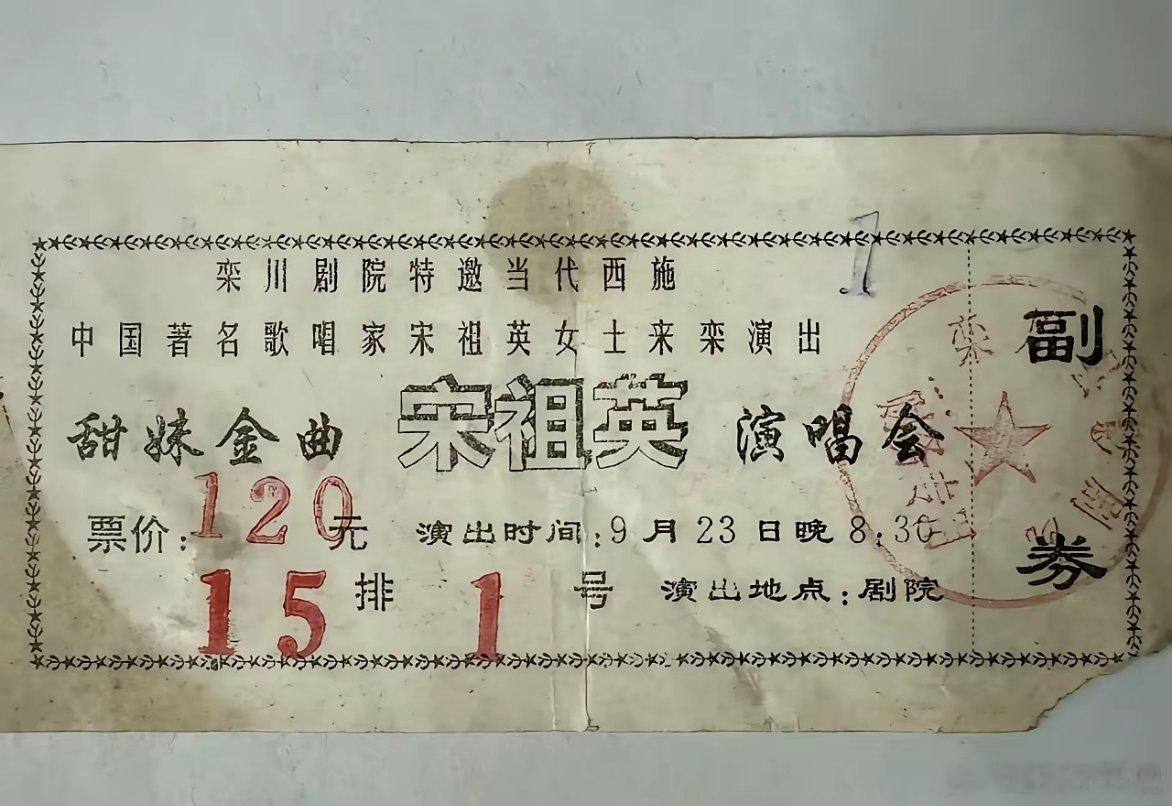 栾川剧院特邀当代西施
中国著名歌唱家宋祖英女士来栾演出
甜妹金曲 宋祖英 演唱会
票价:120元 演出时间:9月23日晚8:30
15排 1号 演出地点:剧院
副券